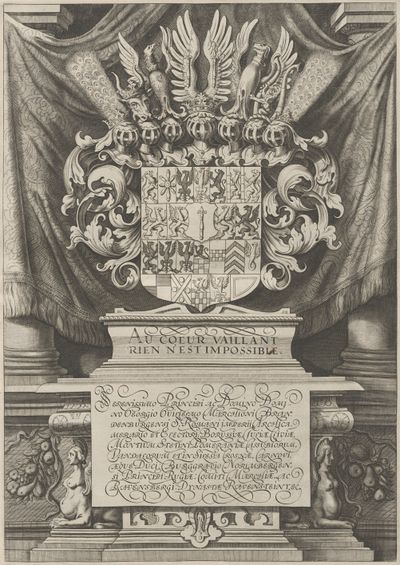 AU COEUR VAILLANT
RIEN N'EST IMPOSSIBLE.
SERENISSIMO PRINCIPI AC DOMINO DOMI
NO GEORGIO GUILIELMO MARCHIONI BRAN
DENBURGENSI S. ROMANI IMPERII ARCHICA
MERARIO ET ELECTORI BORUSSIÆ JULIÆ CLIVIÆ
MONTIUM STETINI POMERANIÆ CASSUBIORUM
VANDALORUM ET IN SILESIA CROSNÆ CARNOVI
ÆQUE DUCI BURGGRAVIO NORIMBERGEN
SI PRINCIPI RUGIÆ COMITI MARCHIÆ AC
RAVENSBERGI DYNASTÆ RAVENSTEINI, &C.